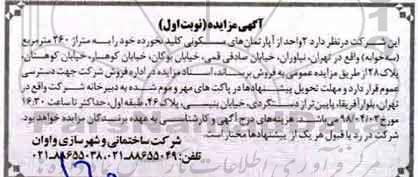 آگهی مزایده (نوبت اول)
این شرکت در نظر دارد ۲ واحد از آپارتمان های مسکونی کلید نخورده خود را به متراژ ۲۶۰ مترمربع
(سه خوابه) واقع در تهران، نیاوران، خیابان صادقی قمی، خیابان بوکان، خیابان کوهسار، خیابان کوهستان،
پلاک ۲۸ از طریق مزایده عمومی به فروش برساند، اسناد مزایده در اداره فروش شرکت جهت دسترسی
عموم قرار دارد و مهلت تحویل پیشنهادها در پاکت های مهر و موم شده به دبیرخانه شرکت واقع در
تهران، بلوار آفریقا، پایین تر از دستگردی، خیابان بنیسی، پلاک ۴۶، طبقه اول، حداکثر تا ساعت ۱۶:۳۰
مورخ ۹۸/۰۴/۰۳ می باشد. هزینه های درج آگهی و کارشناسی به عهده برندگان مزایده خواهد بود.
شرکت در رد یا قبول هر یک از پیشنهادها مختار است.
شرکت ساختمانی و شهرسازی واوان
تلفن: ۸۸۶۵۵۰۴۹-۰۲۱، ۸۸۶۵۵۰۳۸-۰۲۱